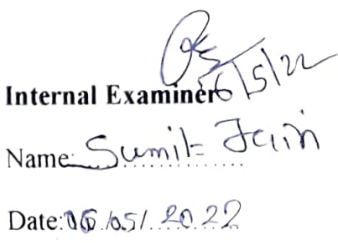 6/5/22
Internal Examiner
Name: Sumit Jain
Date: 06/05/2022